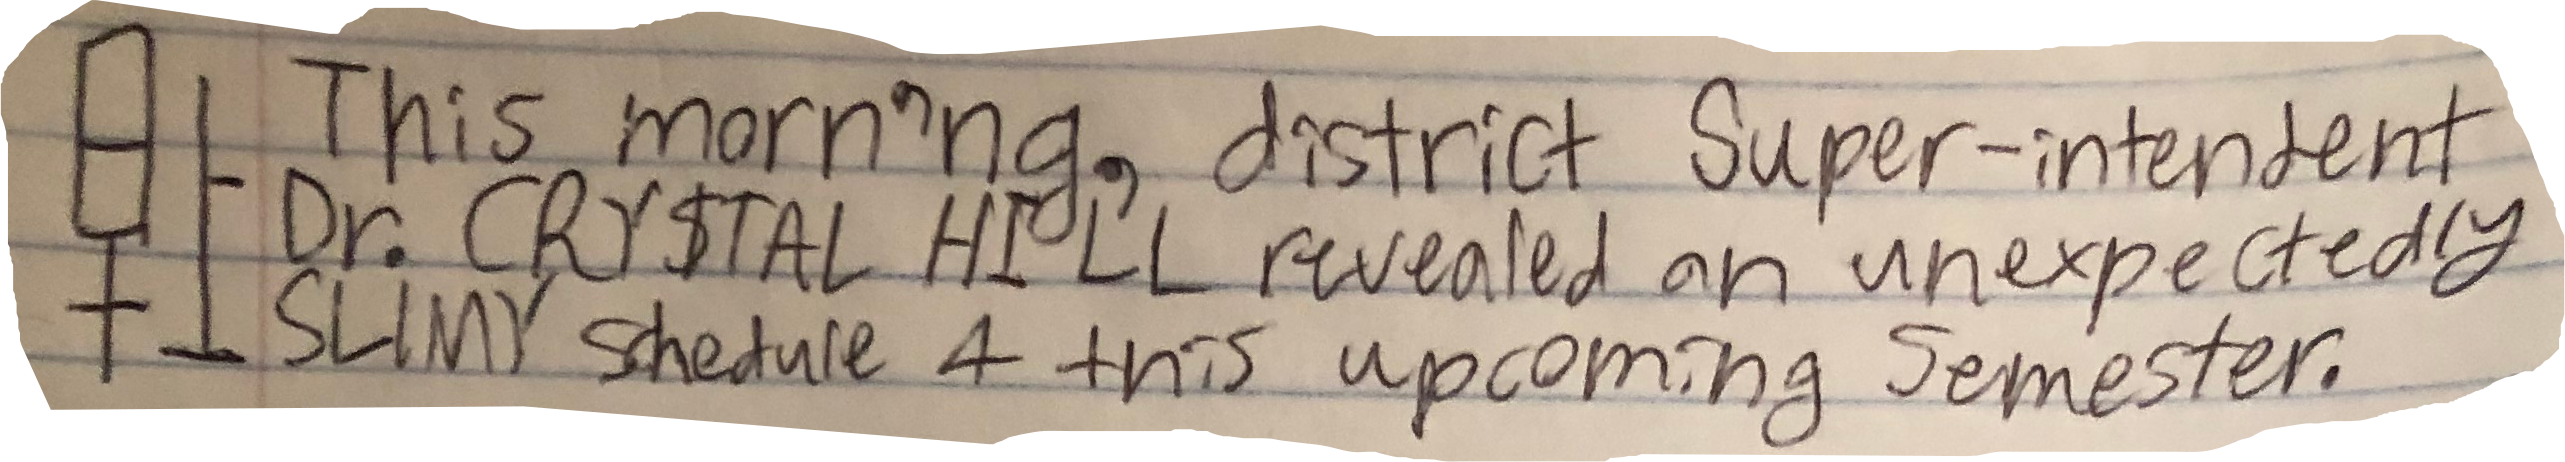 This morning, district Super-intendent
Dr. CRY$TAL HILL revealed an unexpectedly
SLIMY Shedule 4 this upcoming Semester.